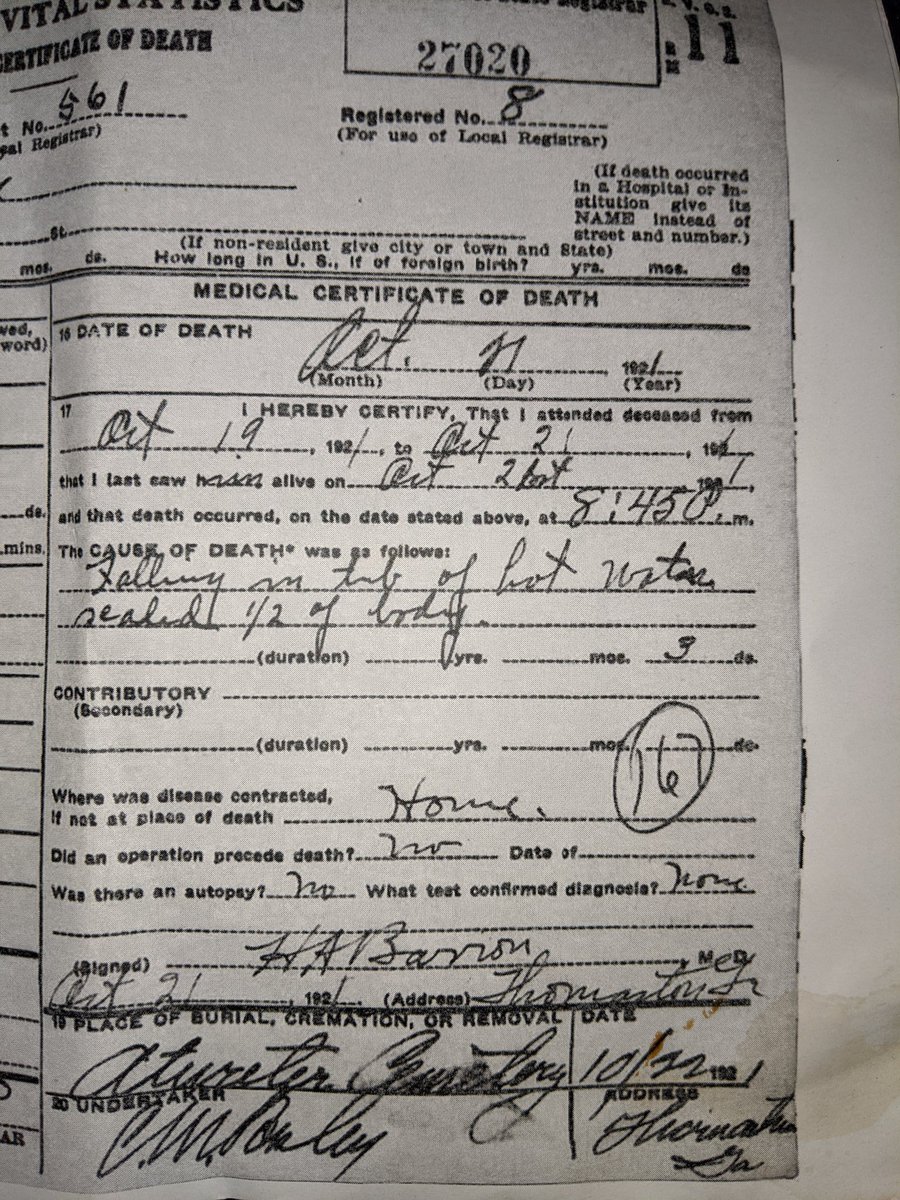 VITAL STATISTICS
CERTIFICATE OF DEATH
State Registrar
27020
11
t No. 561
Registered No. 8
(For use of Local Registrar)
(If death occurred
in a Hospital or In-
stitution give its
NAME instead of
street and number.)
St.
(If non-resident give city or town and State)
mos. ds. How long in U. S., if of foreign birth? yrs. mos. ds
MEDICAL CERTIFICATE OF DEATH
wed,
word)
16 DATE OF DEATH
Oct. 21, 1921
(Month) (Day) (Year)
17 I HEREBY CERTIFY, That I attended deceased from
Oct 19, 1921, to Oct 21, 1921
that I last saw alive on Oct 21st 1921,
and that death occurred, on the date stated above, at 8:45 P. m.
The CAUSE OF DEATH* was as follows:
Falling in tub of hot water
scaled 1/2 of body.
(duration) yrs. mos. 3 ds.
CONTRIBUTORY
(Secondary)
(duration) yrs. mos. ds.
167
Where was disease contracted,
if not at place of death Home.
Did an operation precede death? no Date of
Was there an autopsy? no What test confirmed diagnosis? none
(Signed) H A Barron, M. D.
Oct 21, 1921. (Address) Thomaston Ga
19 PLACE OF BURIAL, CREMATION, OR REMOVAL DATE
Atwater Cemetery 10/22 1921
20 UNDERTAKER ADDRESS
Thomaston
Ga